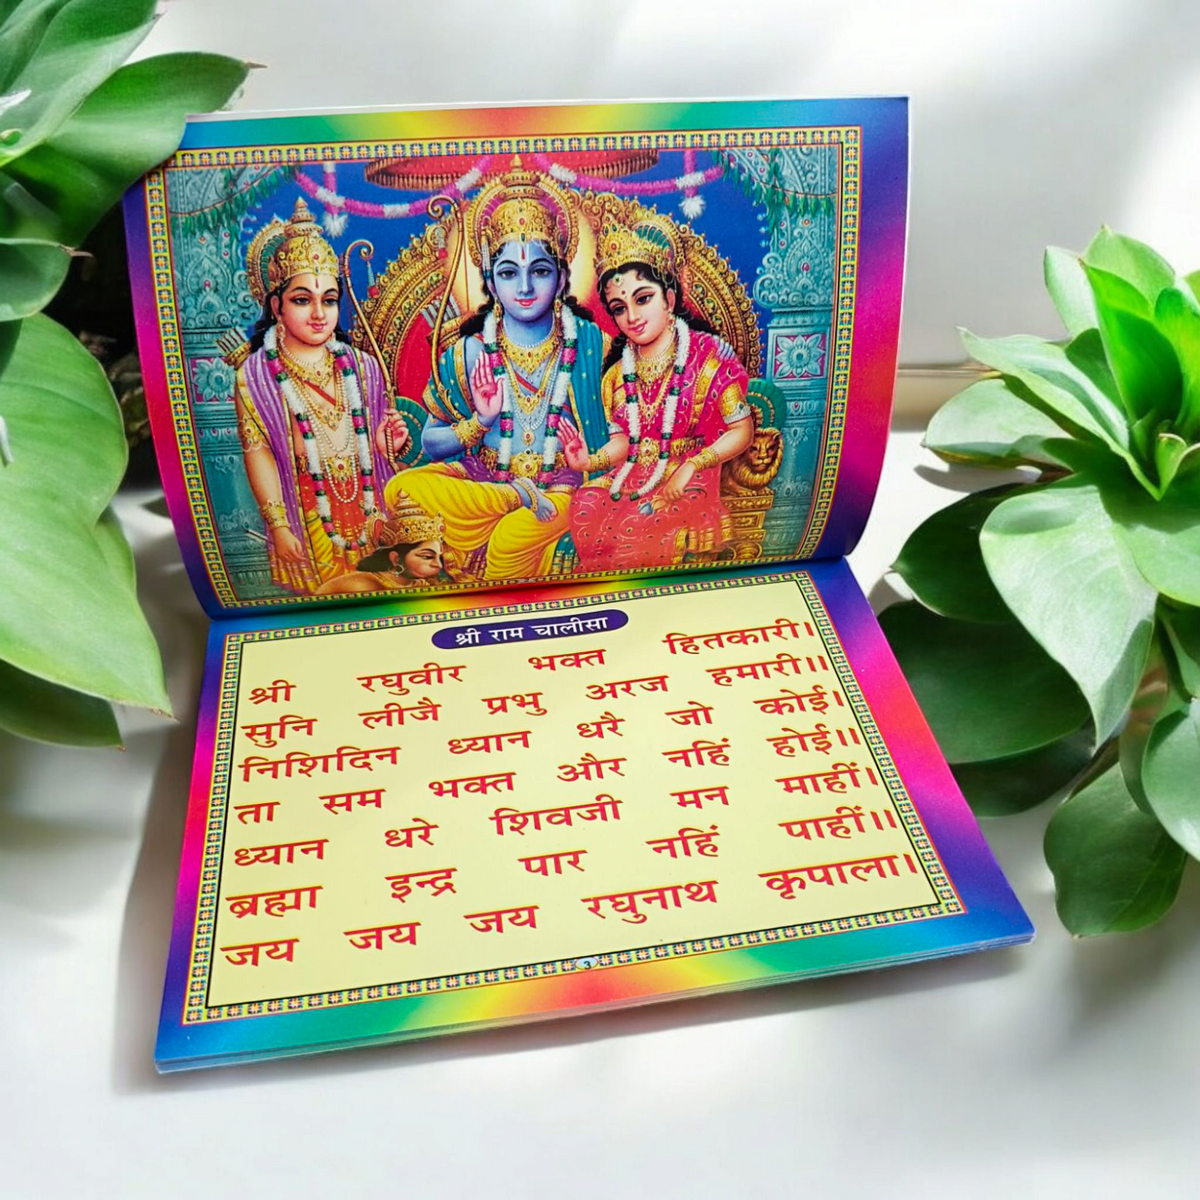 श्री राम चालीसा
श्री रघुवीर भक्त हितकारी।
सुनि लीजै प्रभु अरज हमारी॥
निशिदिन ध्यान धरै जो कोई।
ता सम भक्त और नहिं होई॥
ध्यान धरे शिवजी मन माहीं।
ब्रह्मा इन्द्र पार नहिं पाहीं॥
जय जय जय रघुनाथ कृपाला।
3